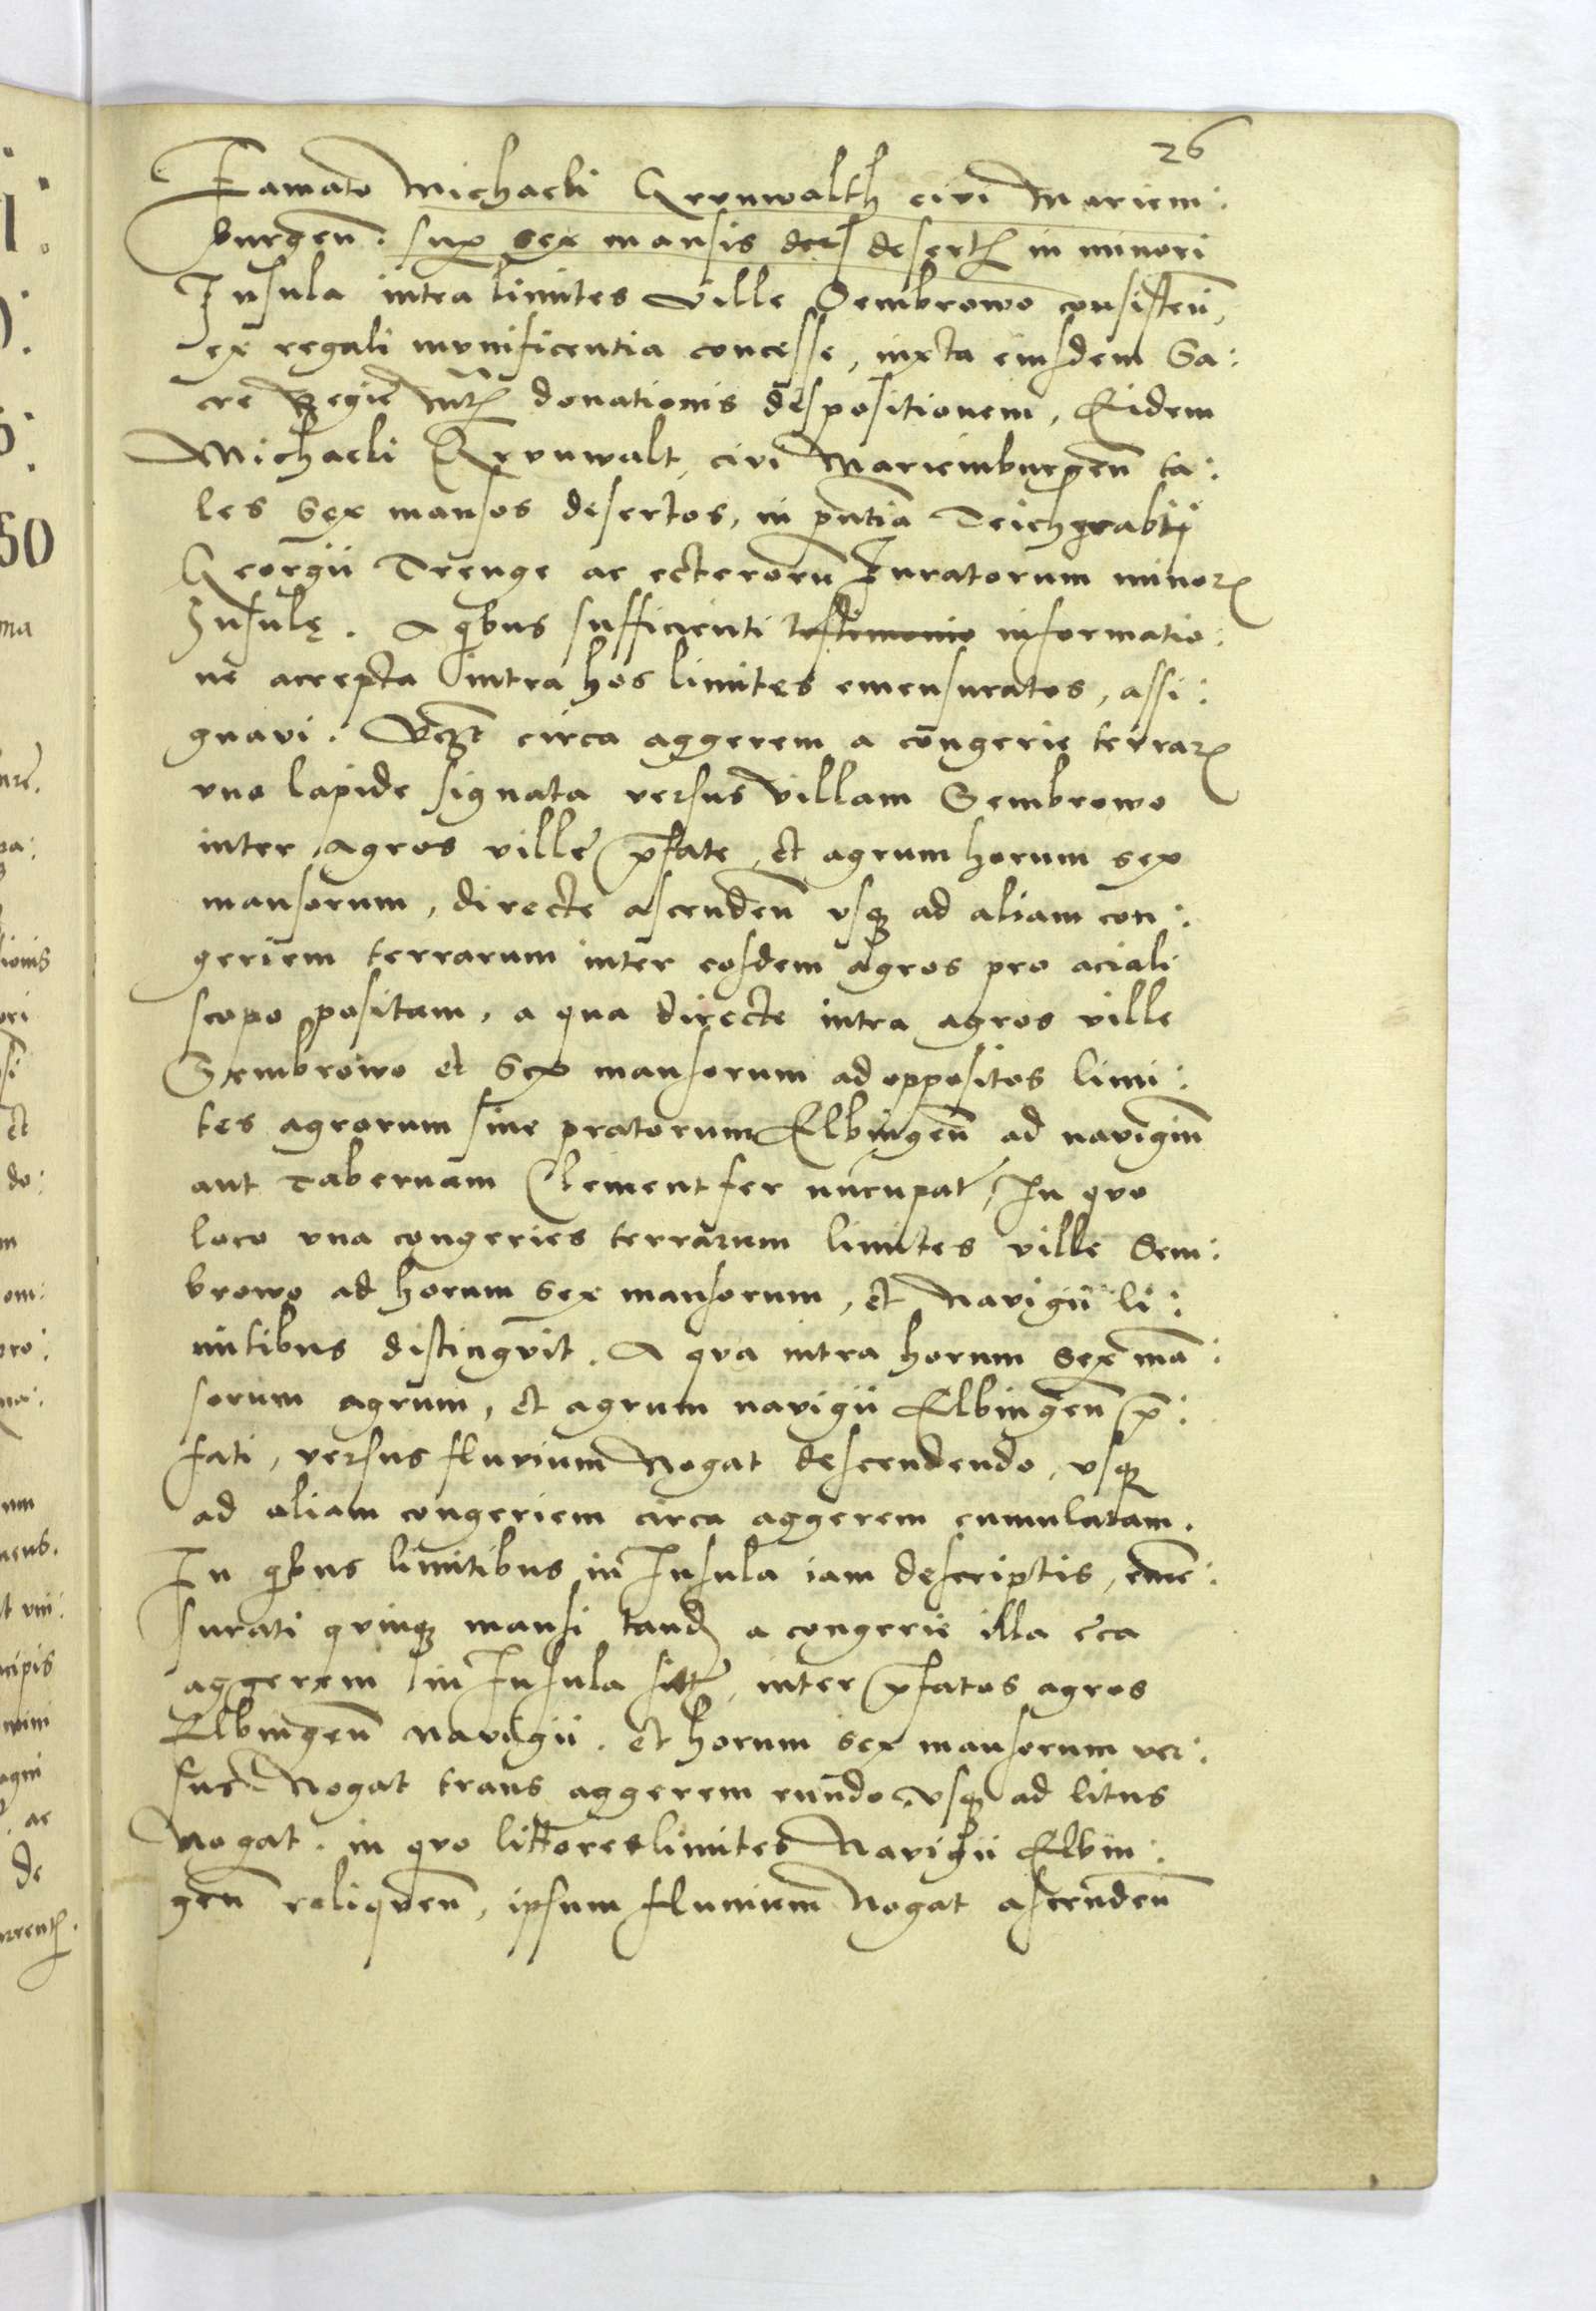 26
Famato Michaeli Grunwalth civi Mariem:
burgen̄. sup sex mansis desertꝭ in minori
Insula intra limites ville Sembrowo consisten̄,
ex regali munificentia concesse, iuxta eiusdem Sa:
cre Regie Mtꝭ donationis despositionem, Eidem
Michaeli Grunwalt, civi Mariemburgen̄ ta:
les Sex mansos desertos, in pn̄tia Teichgrabii
Georgii Trenge ac ceterorū Iuratorum minorꝭ
Insulę. A qbus sufficienti testimonio informatio:
ne accepta intra hos limites emensuratos, assi:
gnavi. Vczt circa aggerem a congerie terrarꝭ
vno lapide signata versus villam Sembrowo
inter agros ville p̄fate, et agrum horum sex
mansorum, directe ascenden̄ vsqꝫ ad aliam con:
geriem terrarum inter eosdem agros pro aciali
scopo positam, a qua directe intra agros ville
Sembrowo et Sex mansorum ad oppositos limi:
tes agrorum siue pratorum Elbingen̄ ad navigiū
aut Tabernam Clementfer nūcupat, In quo
loco vna congeries terrarum limites ville Sem:
browo ad horum sex mansorum, et Navigii li:
mitibus distingvit. A qva intra horum sex mā:
sorum agrum, et agrum navigii Elbingen̄ p̄:
fati, versus fluvium Nogat descendendo, vsqꝫ
ad aliam congeriem circa aggerem cumulatam.
In qbus limitibus in Insula iam descriptis, emē:
surati qvinqꝫ mansi tandꝫ a congerie illa cca
aggerem in Insula, inter p̄fatos agros
Elbingen̄ Navigii. et horum sex mansorum ver:
sus Nogat trans aggerem eundo, vsqꝫ ad litus
Nogat. in qvo littore limites Navigii Elbin:
gen̄ reliquen̄, ipsum fluuium Nogat ascenden̄